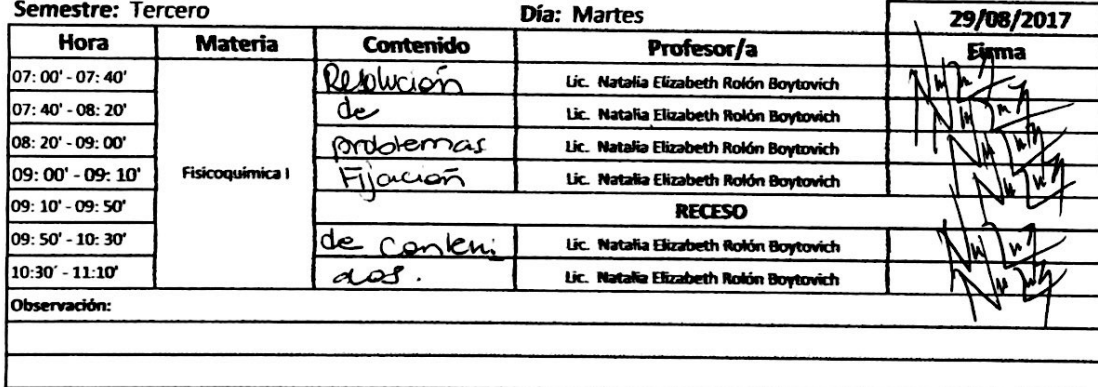 Semestre: Tercero Día: Martes 29/08/2017
Hora Materia Contenido Profesor/a Firma
07: 00' - 07: 40' Resolución Lic. Natalia Elizabeth Rolón Boytovich
07: 40' - 08: 20' de Lic. Natalia Elizabeth Rolón Boytovich
08: 20' - 09: 00' problemas Lic. Natalia Elizabeth Rolón Boytovich
09: 00' - 09: 10' Fisicoquímica I Fijación Lic. Natalia Elizabeth Rolón Boytovich
09: 10' - 09: 50' RECESO
09: 50' - 10: 30' de conteni Lic. Natalia Elizabeth Rolón Boytovich
10:30´ - 11:10' dos. Lic. Natalia Elizabeth Rolón Boytovich
Observación: